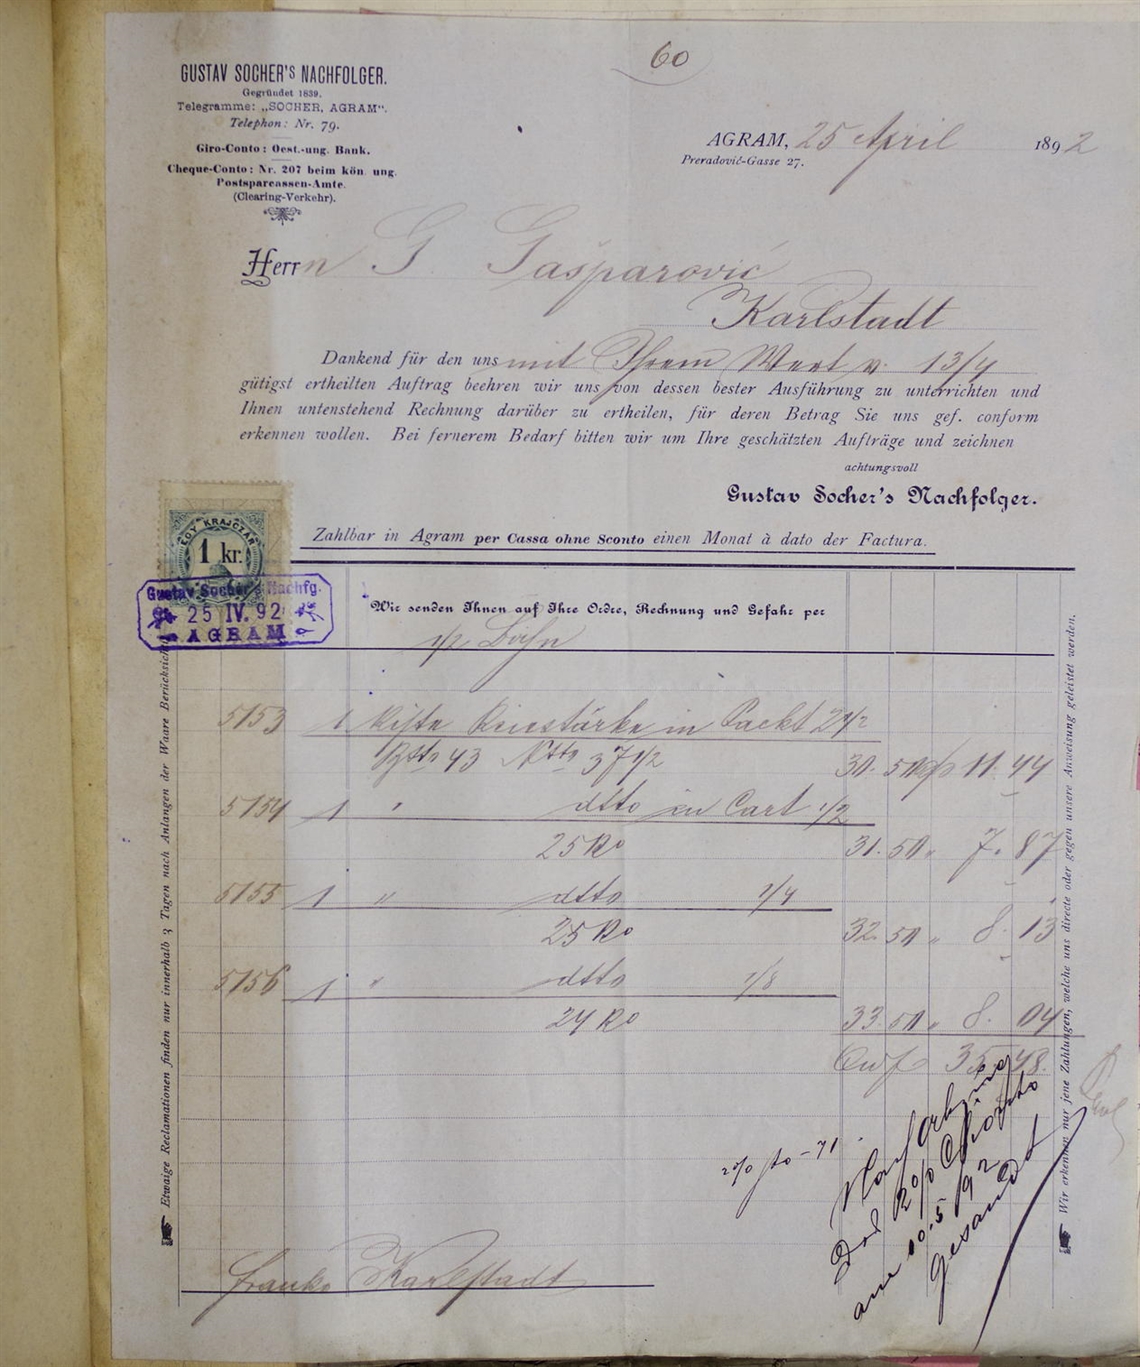 60
GUSTAV SOCHER'S NACHFOLGER.
Gegründet 1839.
Telegramme: „SOCHER, AGRAM“.
Telephon: Nr. 79.
Giro-Conto: Oest.-ung. Bank.
Cheque-Conto: Nr. 207 beim kön. ung.
Postsparcassen-Amte.
(Clearing-Verkehr).
AGRAM, 25 April 1892
Preradović-Gasse 27.
Herrn G. Gašparović
Karlstadt
Dankend für den uns mit Ihrem Wert v. 13/4
gütigst ertheilten Auftrag beehren wir uns von dessen bester Ausführung zu unterrichten und
Ihnen untenstehend Rechnung darüber zu ertheilen, für deren Betrag Sie uns gef. conform
erkennen wollen. Bei fernerem Bedarf bitten wir um Ihre geschätzten Aufträge und zeichnen
achtungsvoll
Gustav Socher's Nachfolger.
Zahlbar in Agram per Cassa ohne Sconto einen Monat à dato der Factura.
EGY KRAJCZÁR
1 kr.
Gustav Socher's Nachfg.
25 IV. 92
AGRAM
Wir senden Ihnen auf Ihre Ordre, Rechnung und Gefahr per
p. Bahn
5153 1 Kiste Reisstärke in Packt 2 1/2
Btto 43 Ntto 37 1/2 30. 50 11. 44
5154 1 " dtto in Cart 1/2
25 Ko 31. 50 " 7. 87
5155 1 " dtto 1/4
25 Ko 32. 50 " 8. 13
5156 1 " dtto 1/8
24 Ko 33. 50 " 8. 04
35.48.
2% Sto -71
2% Sconto
am 10.5/92
gesandt
franko Karlstadt
Etwaige Reclamationen finden nur innerhalb 3 Tagen nach Anlangen der Waare Berücksich
Wir erkennen nur jene Zahlungen, welche uns directe oder gegen unsere Anweisung geleistet werden.